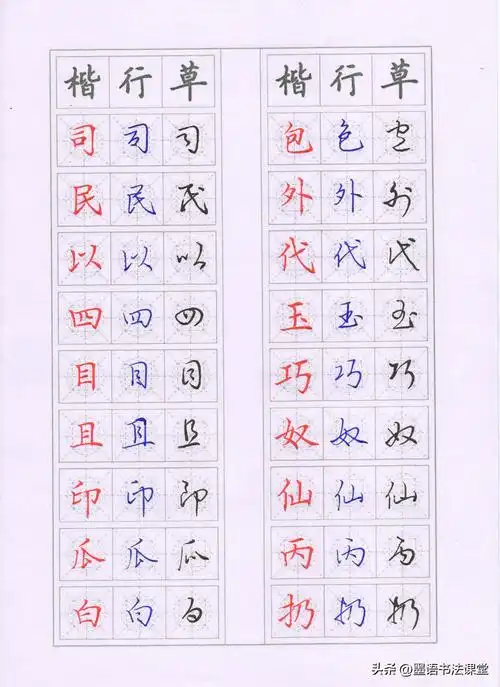 楷 行 草
司 司 司
民 民 民
以 以 以
四 四 四
目 目 目
且 且 且
印 印 印
瓜 瓜 瓜
白 白 白
楷 行 草
包 包 包
外 外 外
代 代 代
玉 玉 玉
巧 巧 巧
奴 奴 奴
仙 仙 仙
丙 丙 丙
扔 扔 扔
头条 @墨语书法课堂